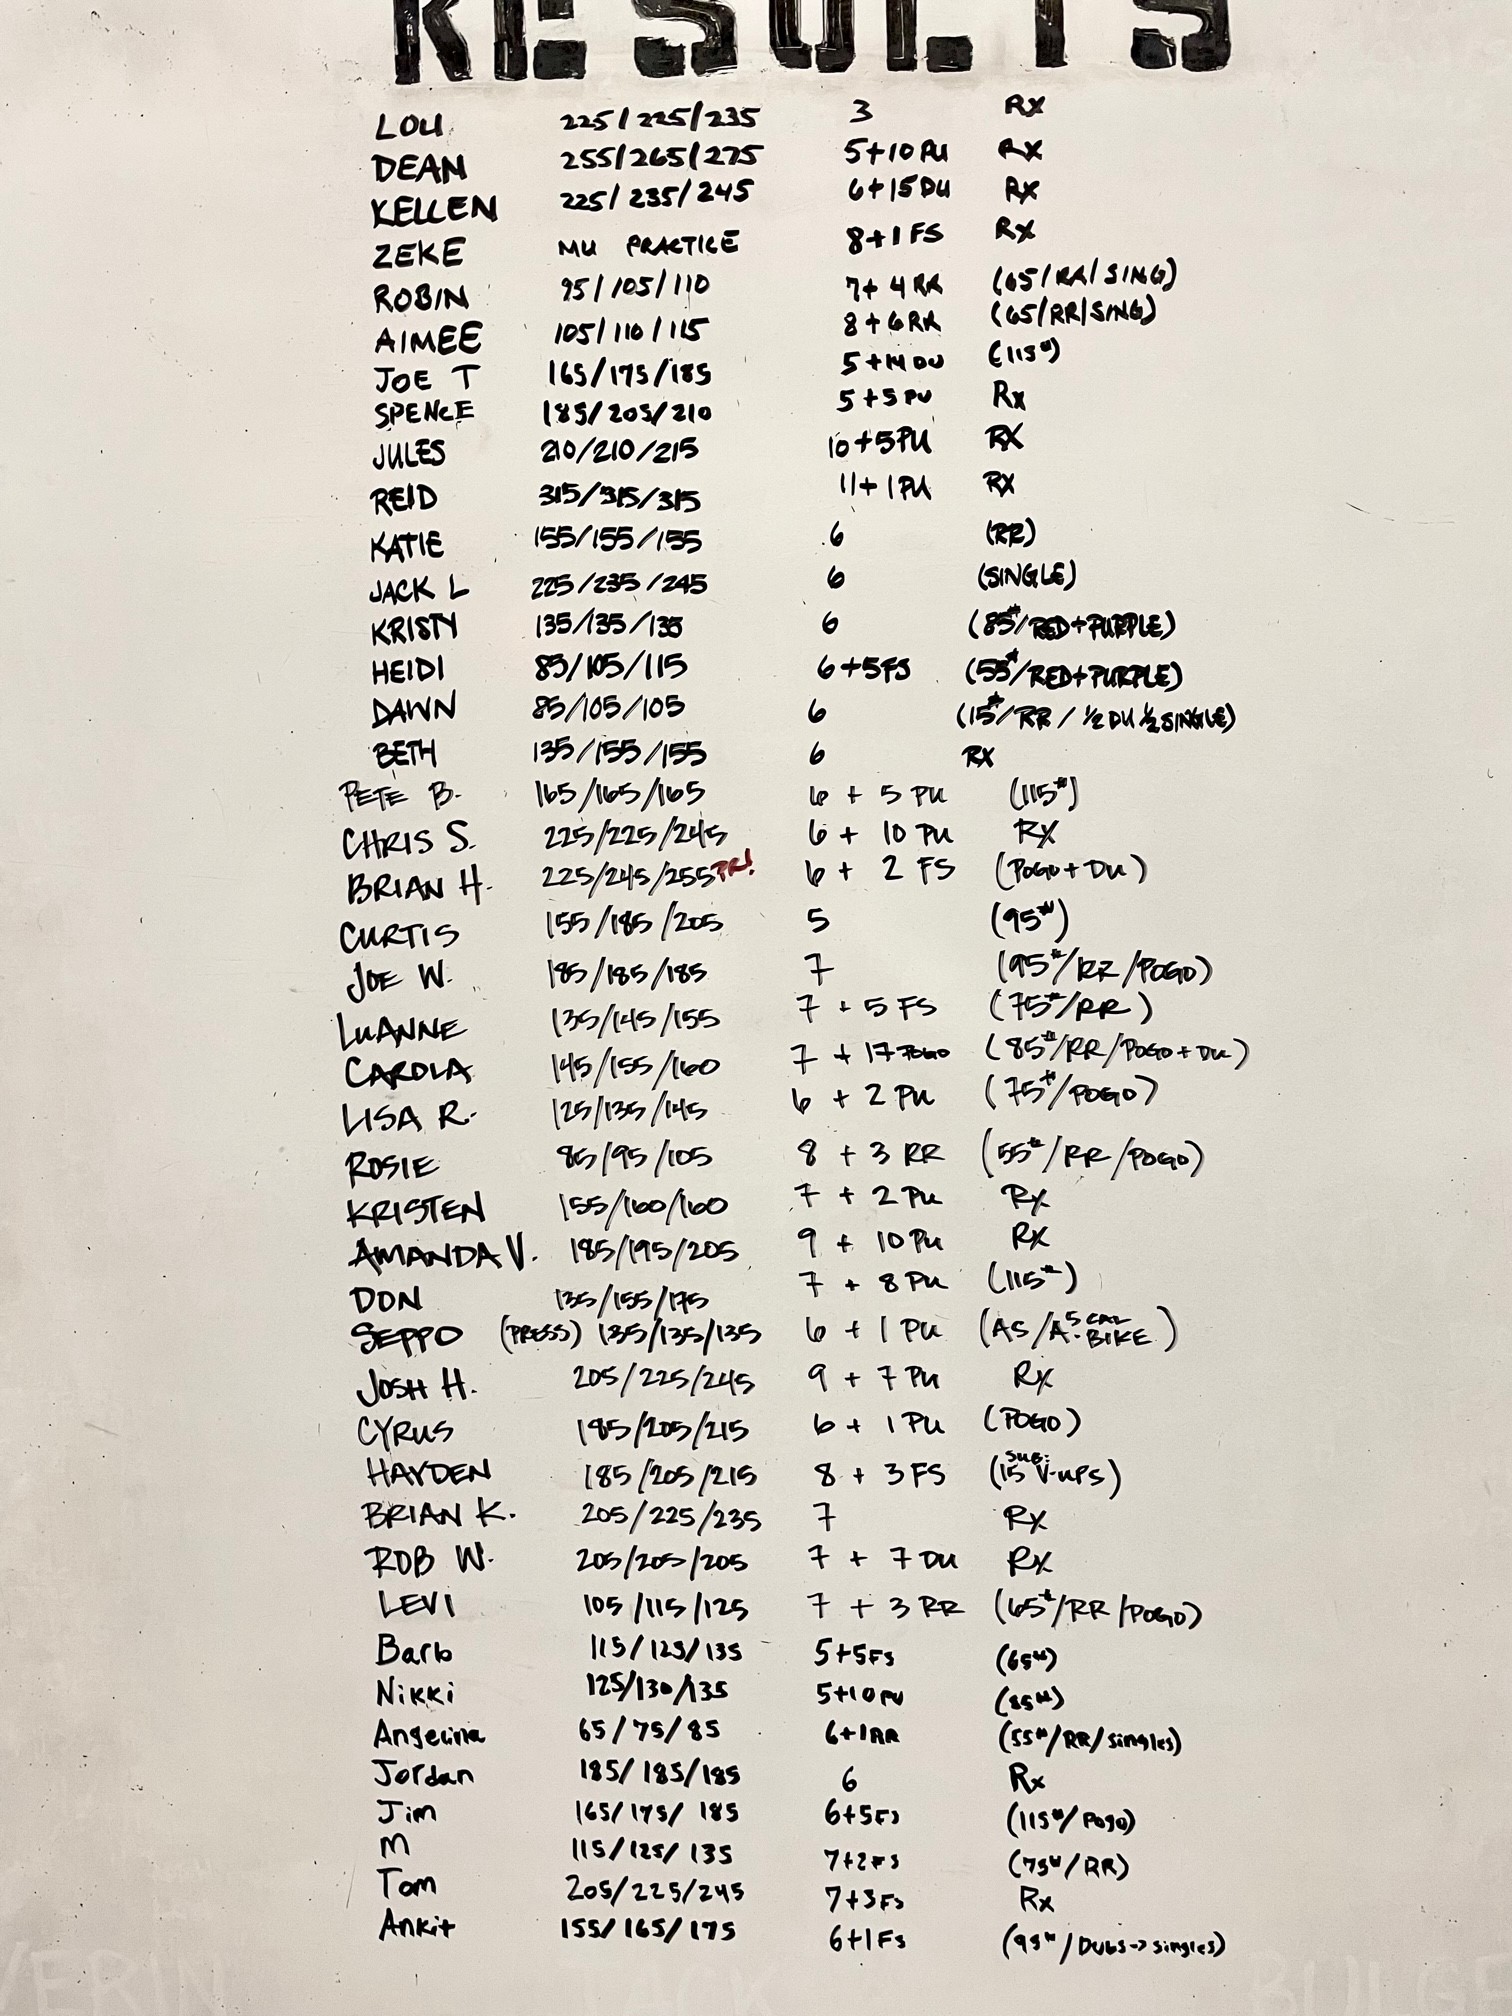 RESULTS
LOU 225/225/235 3 Rx
DEAN 255/265/275 5+10 PU Rx
KELLEN 225/235/245 6+15 DU Rx
ZEKE MU PRACTICE 8+1 FS Rx
ROBIN 95/105/110 7+ 4 RR (65/RR/SING)
AIMEE 105/110/115 8+6 RR (65/RR/SING)
JOE T 165/175/185 5+14 DU (115#)
SPENCE 185/205/210 5+5 PU Rx
JULES 210/210/215 10+5 PU RX
REID 315/315/315 11+ 1 PU RX
KATIE 155/155/155 6 (RR)
JACK L 225/235/245 6 (SINGLE)
KRISTY 135/135/135 6 (85#/RED+PURPLE)
HEIDI 85/105/115 6+5FS (55#/RED+PURPLE)
DAWN 85/105/105 6 (15#/RR / ½ DU ½ SINGLE)
BETH 135/155/155 6 RX
PETE B. 165/165/165 6 + 5 PU (115#)
CHRIS S. 225/225/245 6 + 10 PU RX
BRIAN H. 225/245/255 PR! 6 + 2 FS (POGO + DU)
CURTIS 155/185/205 5 (95#)
JOE W. 185/185/185 7 (95#/RR/POGO)
LUANNE 135/145/155 7 + 5 FS (75#/RR)
CAROLA 145/155/160 7 + 17 POGO (85#/RR/POGO + DU)
LISA R. 125/135/145 6 + 2 PU (75#/POGO)
ROSIE 85/95/105 8 + 3 RR (55#/RR/POGO)
KRISTEN 155/160/160 7 + 2 PU Rx
AMANDA V. 185/195/205 9 + 10 PU Rx
DON 135/155/175 7 + 8 PU (115#)
SEPPO (PRESS) 135/135/135 6 + 1 PU (AS/5 CAL A. BIKE)
JOSH H. 205/225/245 9 + 7 PU Rx
CYRUS 185/205/215 6 + 1 PU (POGO)
HAYDEN 185/205/215 8 + 3 FS (SUB: 15 V-UPS)
BRIAN K. 205/225/235 7 Rx
ROB W. 205/205/205 7 + 7 DU Rx
LEVI 105/115/125 7 + 3 RR (65#/RR/POGO)
Barb 115/125/135 5+5Fs (65#)
Nikki 125/130/135 5+10 PU (85#)
Angelina 65/75/85 6+1RR (55#/RR/singles)
Jordan 185/185/185 6 Rx
Jim 165/175/185 6+5Fs (115#/Pogo)
M 115/125/135 7+2Fs (75#/RR)
Tom 205/225/245 7+3Fs Rx
Ankit 155/165/175 6+1Fs (95#/Dubs->singles)